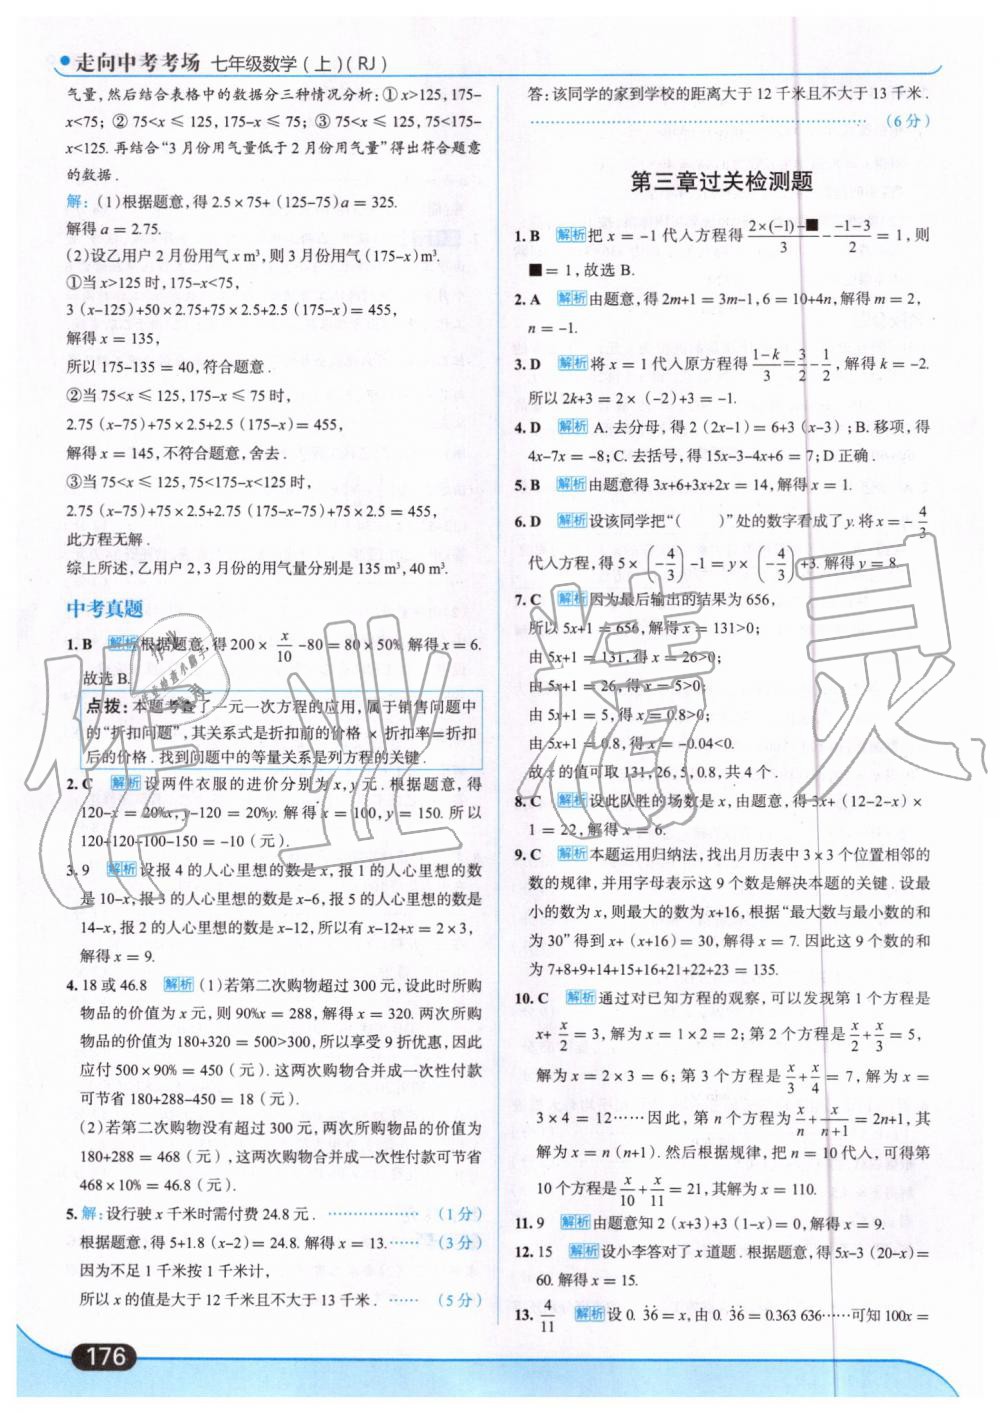 走向中考考场 七年级数学(上)(RJ)
气量,然后结合表格中的数据分三种情况分析:①x>125,175-
x<75; ②75<x≤125,175-x≤75; ③75<x≤125,75<175-
x<125.再结合“3月份用气量低于2月份用气量”得出符合题意
的数据.
解:(1)根据题意,得2.5×75+(125-75)a=325.
解得a=2.75.
(2)设乙用户2月份用气x m³,则3月份用气(175-x)m³.
①当x>125时,175-x<75,
3(x-125)+50×2.75+75×2.5+2.5(175-x)=455,
解得x=135,
所以175-135=40,符合题意.
②当75<x≤125,175-x≤75时,
2.75(x-75)+75×2.5+2.5(175-x)=455,
解得x=145,不符合题意,舍去.
③当75<x≤125,75<175-x<125时,
2.75(x-75)+75×2.5+2.75(175-x-75)+75×2.5=455,
此方程无解.
综上所述,乙用户2,3月份的用气量分别是135 m³,40 m³.
中考真题
1.B 解析 根据题意,得200×x/10-80=80×50%.解得x=6.
故选B.
点拨:本题考查了一元一次方程的应用,属于销售问题中
的“折扣问题”,其关系式是折扣前的价格×折扣率=折扣
后的价格.找到问题中的等量关系是列方程的关键.
2.C 解析 设两件衣服的进价分别为x,y元.根据题意,得
120-x=20%x,y-120=20%y.解得x=100,y=150.所以
120+120-100-150=-10(元).
3.9 解析 设报4的人心里想的数是x,报1的人心里想的数
是10-x,报3的人心里想的数是x-6,报5的人心里想的数是
14-x,报2的人心里想的数是x-12,所以有x-12+x=2×3,
解得x=9.
4.18或46.8 解析 (1)若第二次购物超过300元,设此时所购
物品的价值为x元,则90%x=288,解得x=320.两次所购
物品的价值为180+320=500>300,所以享受9折优惠,因此
应付500×90%=450(元).这两次购物合并成一次性付款
可节省180+288-450=18(元).
(2)若第二次购物没有超过300元,两次所购物品的价值为
180+288=468(元),这两次购物合并成一次性付款可节省
468×10%=46.8(元).
5.解:设行驶x千米时需付费24.8元. ……………… (1分)
根据题意,得5+1.8(x-2)=24.8.解得x=13. …… (3分)
因为不足1千米按1千米计,
所以x的值是大于12千米且不大于13千米. …… (5分)
176
答:该同学的家到学校的距离大于12千米且不大于13千米.
…………………………………………………… (6分)
第三章过关检测题
1.B 解析 把x=-1代入方程得(2×(-1)-■)/3-(-1-3)/2=1,则
■=1,故选B.
2.A 解析 由题意,得2m+1=3m-1,6=10+4n,解得m=2,
n=-1.
3.D 解析 将x=1代入原方程得(1-k)/3=3/2-1/2,解得k=-2.
所以2k+3=2×(-2)+3=-1.
4.D 解析 A.去分母,得2(2x-1)=6+3(x-3);B.移项,得
4x-7x=-8;C.去括号,得15x-3-4x+6=7;D正确.
5.B 解析 由题意得3x+6+3x+2x=14,解得x=1.
6.D 解析 设该同学把“( )”处的数字看成了y.将x=-4/3
代入方程,得5×(-4/3)-1=y×(-4/3)+3.解得y=8.
7.C 解析 因为最后输出的结果为656,
所以5x+1=656,解得x=131>0;
由5x+1=131,得x=26>0;
由5x+1=26,得x=5>0;
由5x+1=5,得x=0.8>0;
由5x+1=0.8,得x=-0.04<0.
故x的值可取131,26,5,0.8,共4个.
8.C 解析 设此队胜的场数是x,由题意,得3x+(12-2-x)×
1=22,解得x=6.
9.C 解析 本题运用归纳法,找出月历表中3×3个位置相邻的
数的规律,并用字母表示这9个数是解决本题的关键.设最
小的数为x,则最大的数为x+16,根据“最大数与最小数的和
为30”得到x+(x+16)=30,解得x=7.因此这9个数的和
为7+8+9+14+15+16+21+22+23=135.
10.C 解析 通过对已知方程的观察,可以发现第1个方程是
x+x/2=3,解为x=1×2=2;第2个方程是x/2+x/3=5,
解为x=2×3=6;第3个方程是x/3+x/4=7,解为x=
3×4=12……因此,第n个方程为x/n+x/(n+1)=2n+1,其
解为x=n(n+1).然后根据规律,把n=10代入,可得第
10个方程是x/10+x/11=21,其解为x=110.
11.9 解析 由题意知2(x+3)+3(1-x)=0,解得x=9.
12.15 解析 设小李答对了x道题.根据题意,得5x-3(20-x)=
60.解得x=15.
13.4/11 解析 设0.3̇6̇=x,由0.3̇6̇=0.363 636……可知100x=
作业精灵